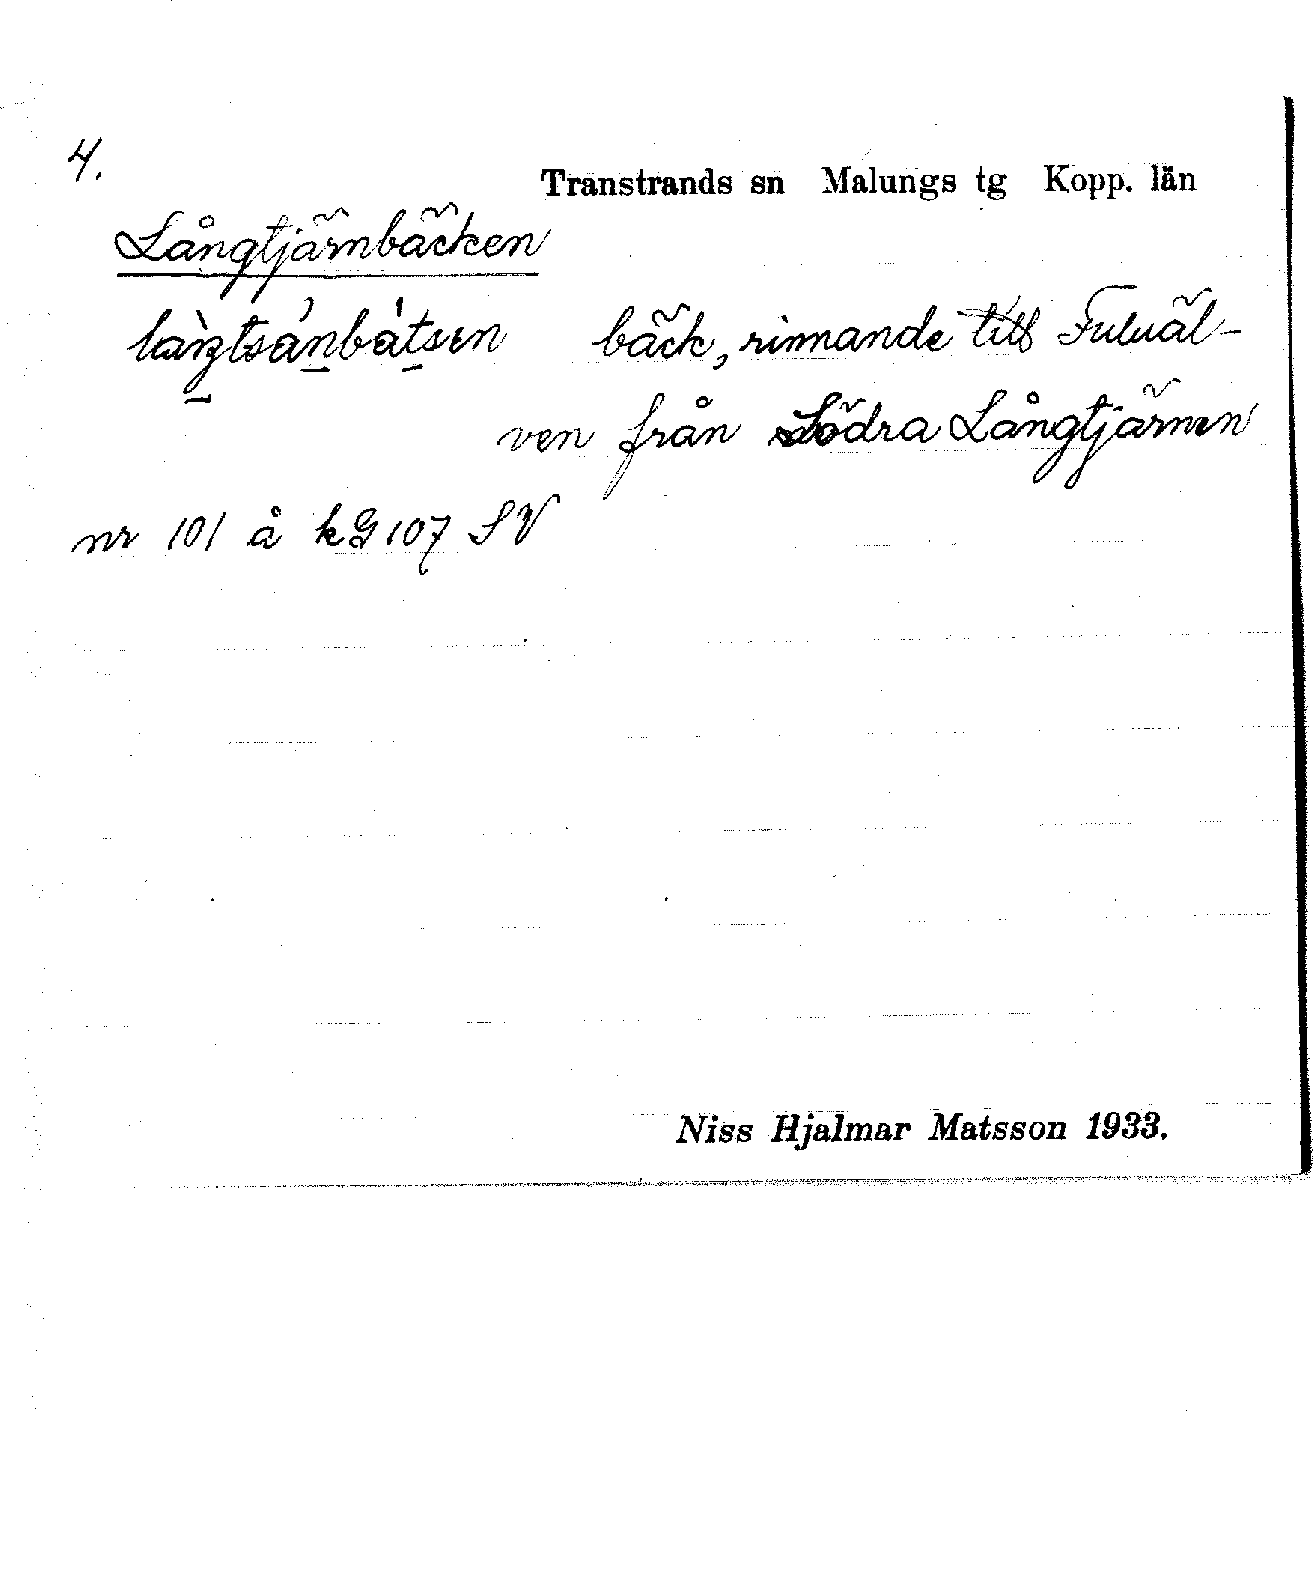 4.
Transtrands sn Malungs tg Kopp. län
Långtjärnbäcken
bäck, rinnande till Fuluäl-
ven från Södra Långtjärnen
nr 101 å kG 107 SV
Niss Hjalmar Matsson 1933.